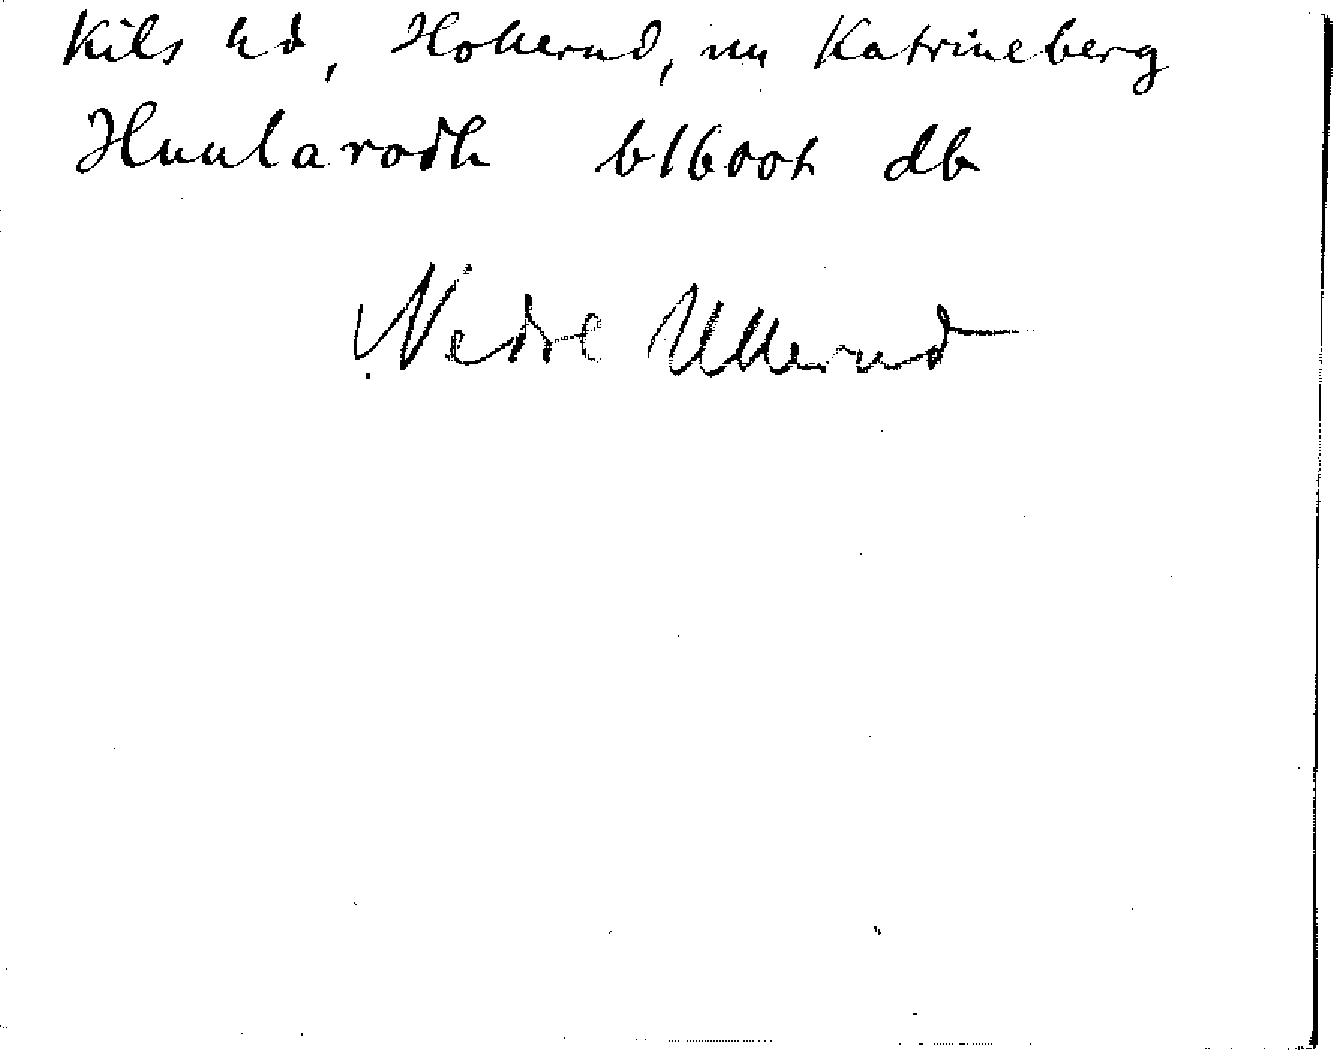 Kils hd, Hollerud, nu Katrineberg
Humlarödh b1600t db
Nedre Ullerud